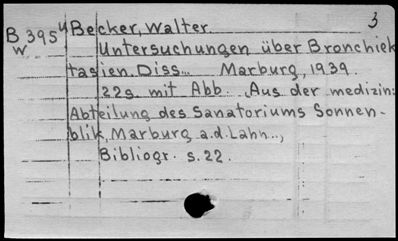 3
B 395u Becker, Walter.
w
Untersuchungen über Bronchiek
tasien. Diss... Marburg, 1939.
22s. mit Abb. Aus der medizin.
Abteilung des Sanatoriums Sonnen-
blik, Marburg a.d. Lahn..,
Bibliogr. s.22.